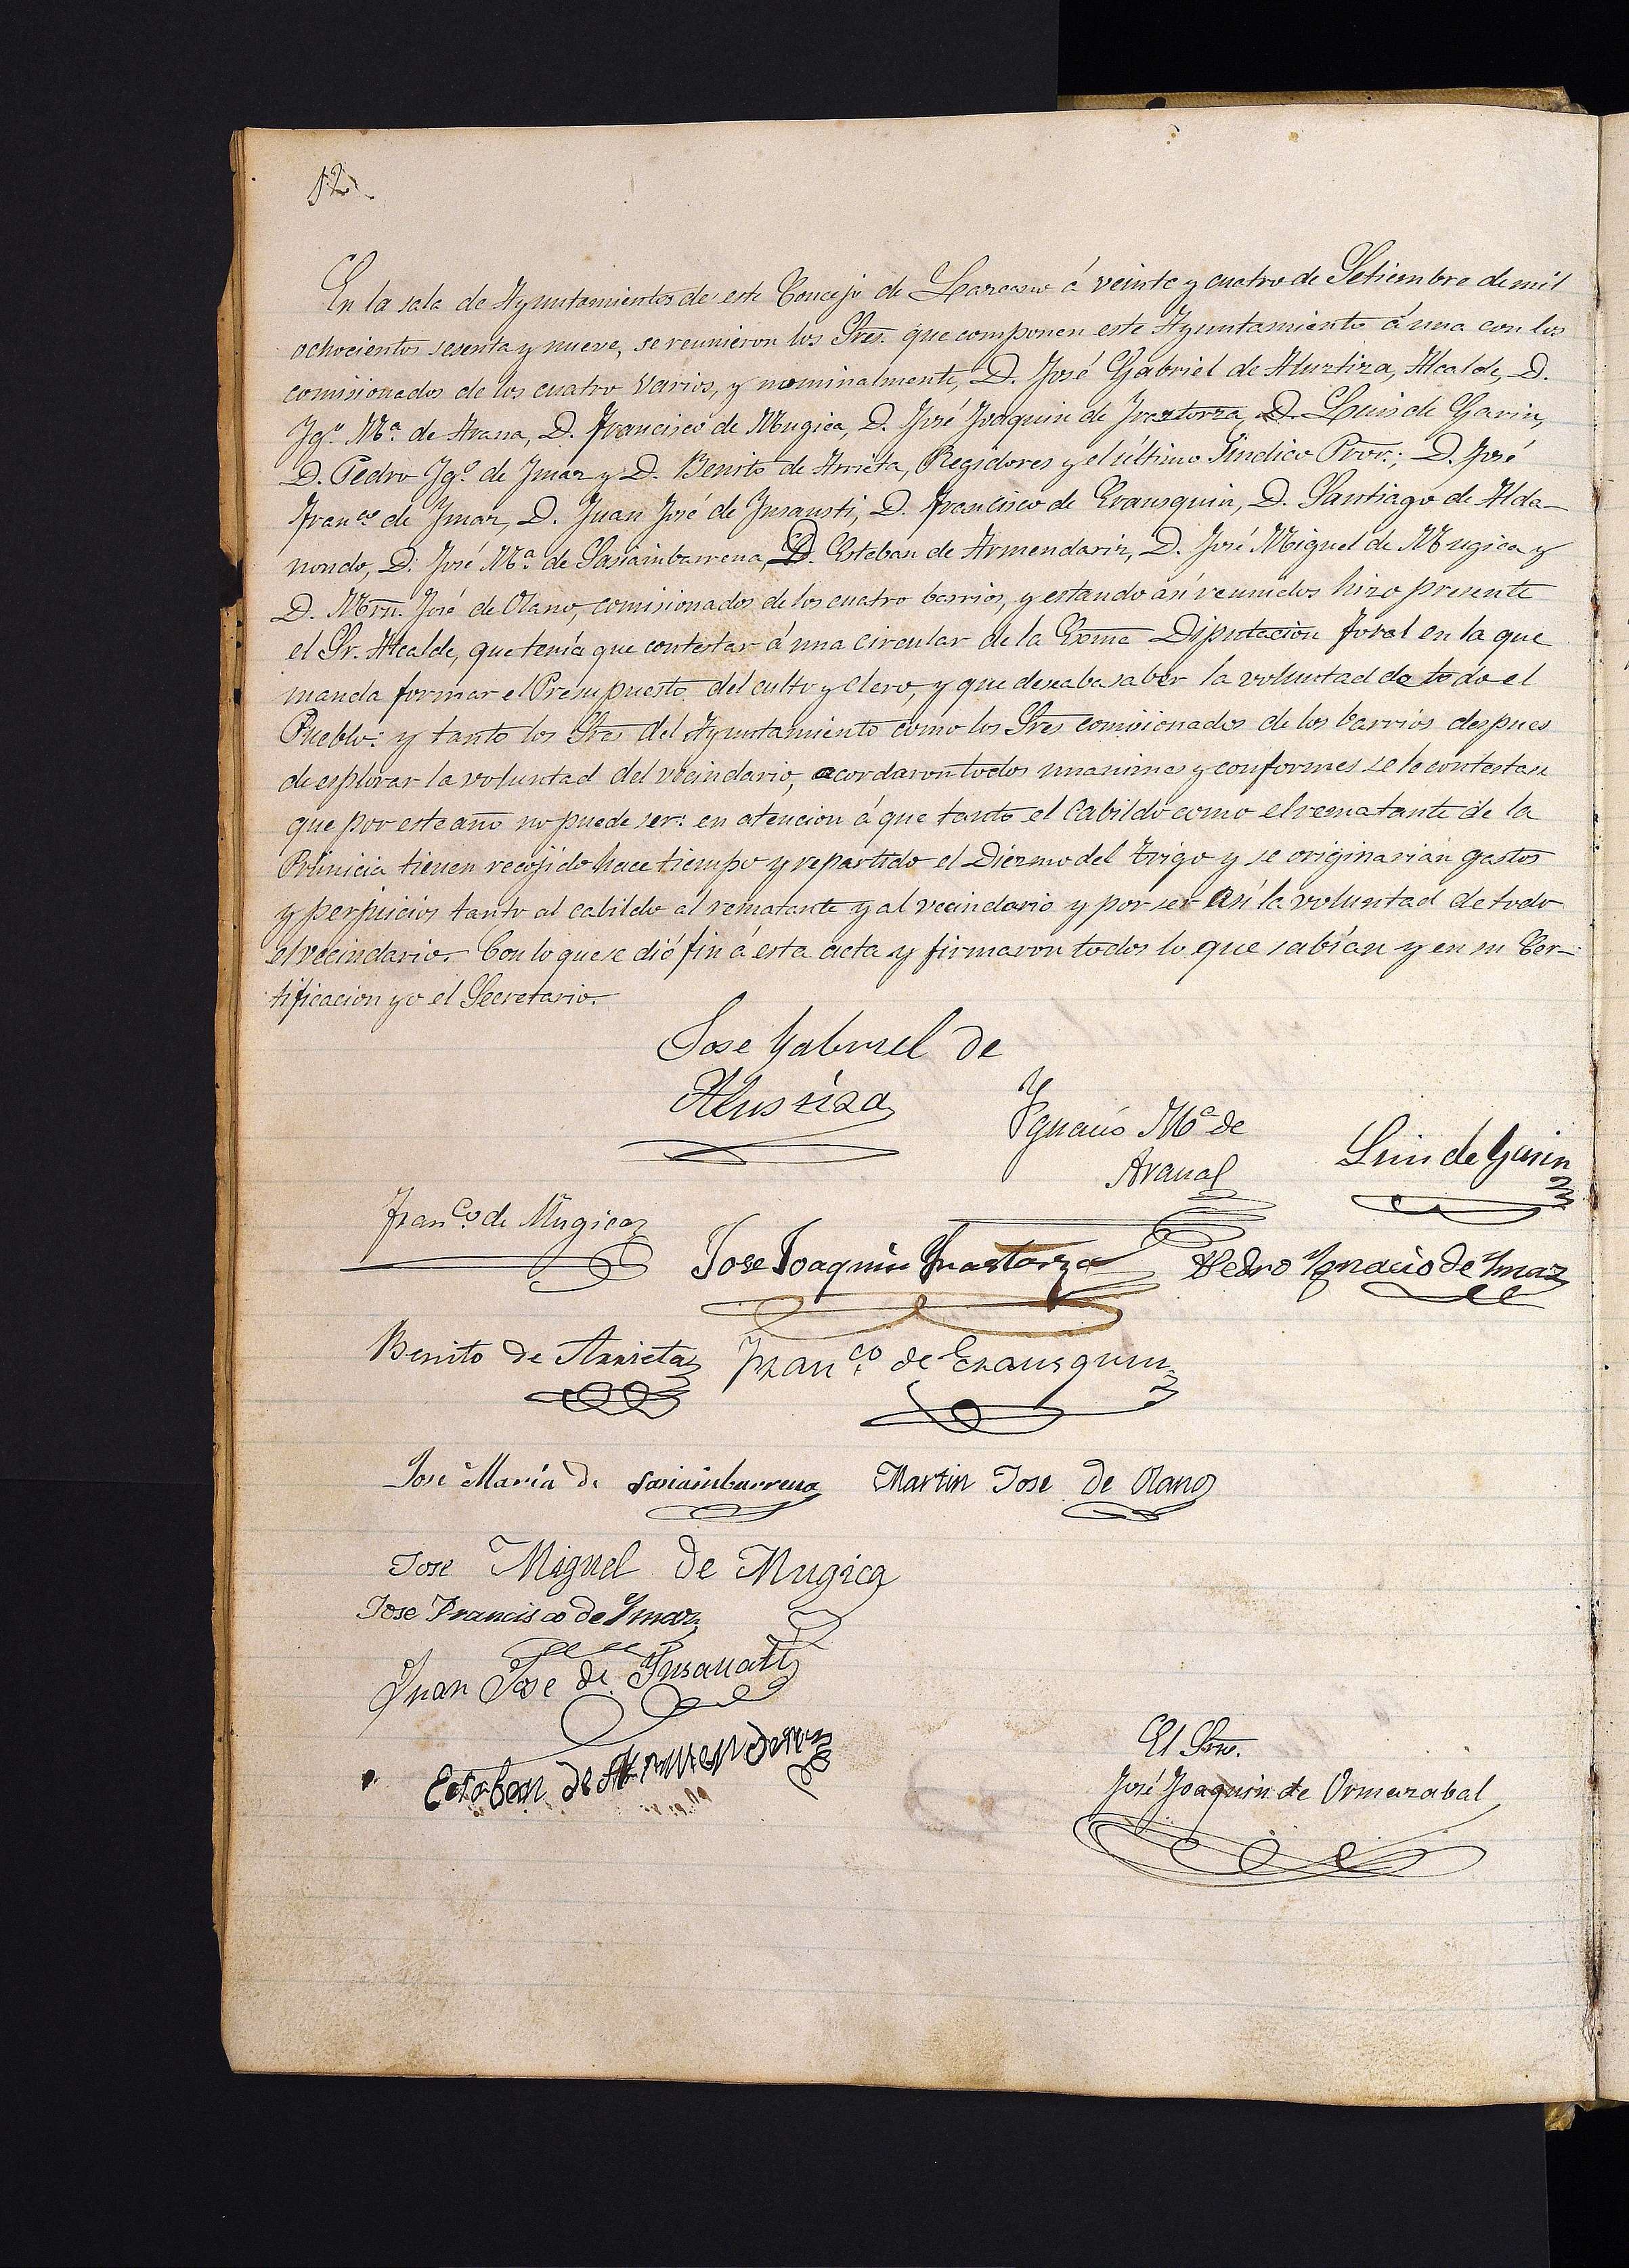 12
En la sala de Ayuntamientos de este Concejo de Larcano á veinte y cuatro de Setiembre de mil
ochocientos sesenta y nueve, se reunieron los Sres. que componen este Ayuntamiento á una con los
comisionados de los cuatro varios, y nominalmente, D. José Gabriel de Alustiza, Alcalde, D.
Jgº. Mª. de Arana, D. Francisco de Mugica, D. José Joaquin de Yraztorza, D. Luis de Garin,
D. Pedro Jgº. de Jmaz y D. Benito de Arrieta, Regidores y el último Sindico Pror.; D. José
Francº de Ymaz, D. Juan José de Jnsausti, D. Francisco de Erausquin, D. Santiago de Alda-
nondo, D. José Mª. de Sasiambarrena, D. Esteban de Armendariz, D. José Miguel de Mugica y
D. Mrn. José de Olano, comisionados de los cuatro barrios, y estando así reunidos hizo presente
el Sr. Alcalde, que tenía que contestar á una circular de la Exma Diputacion foral en la que
manda formar el Presupuesto del culto y clero, y que deseaba saber la voluntad de todo el
Pueblo: y tanto los Sres del Ayuntamiento como los Sres comisionados de los barrios despues
de esplorar la voluntad del vecindario, acordaron todos unanimes y conformes se le contestase
que por este año no puede ser: en atencion á que tanto el Cabildo como el rematante de la
Primicia tienen recojido hace tiempo y repartido el Diezmo del trigo y se originarian gastos
y perjuicios tanto al cabildo al rematante y al vecindario y por ser así la voluntad de todo
el vecindario. Con lo que se dió fin á esta acta y firmaron todos lo que sabían y en su Cer-
tificacion yo el Secretario.
Jose Gabriel de
Alustiza
Ygnacio Mª de
Arana
Luis de Garin
Franco. de Mugica
Jose Joaquin Yraztorza
Pedro Ygnacio de Ymaz
Benito de Arrieta
Franco. de Erausquin
Jose Maria de Sasiambarrena
Martin Jose de Olano
Jose Miguel de Mugica
Jose Francisco de Ymaz
Juan Jose de Ynsausti
Esteban de Armendariz
El Srio.
José Joaquin de Ormazabal